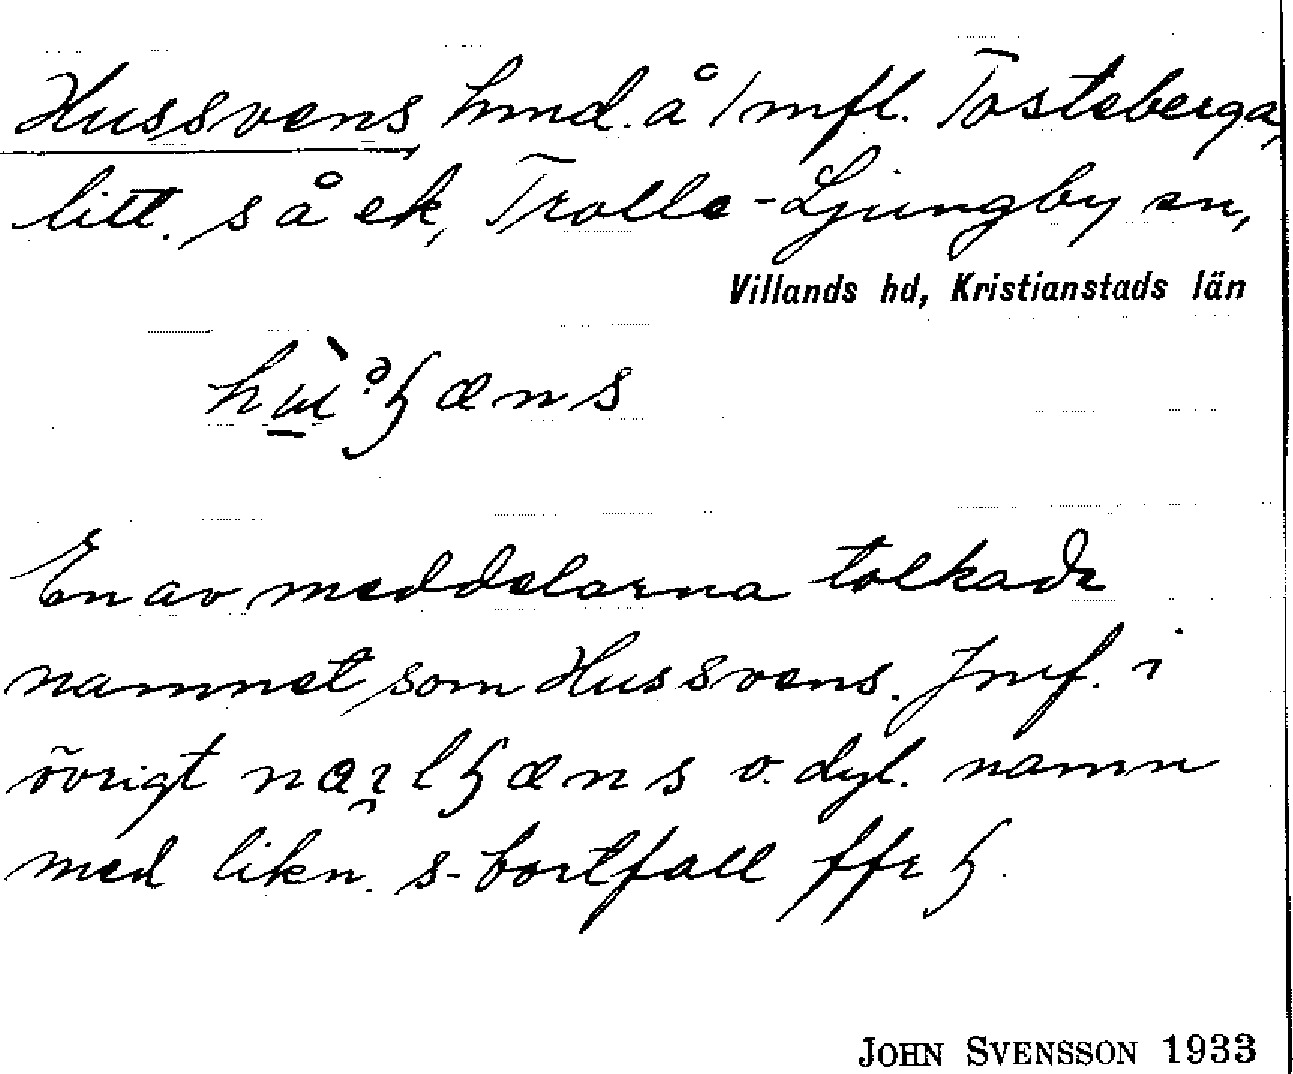 Hussvens hmd. å 1 mfl. Tosteberga,
litt. s å ek, Trolle-Ljungby sn,
Villands hd, Kristianstads län
En av meddelarna tolkade
namnet som Hussvens. Jmf. i
övrigt o. dyl. namn
med likn. s-bortfall ffr
JOHN SVENSSON 1933